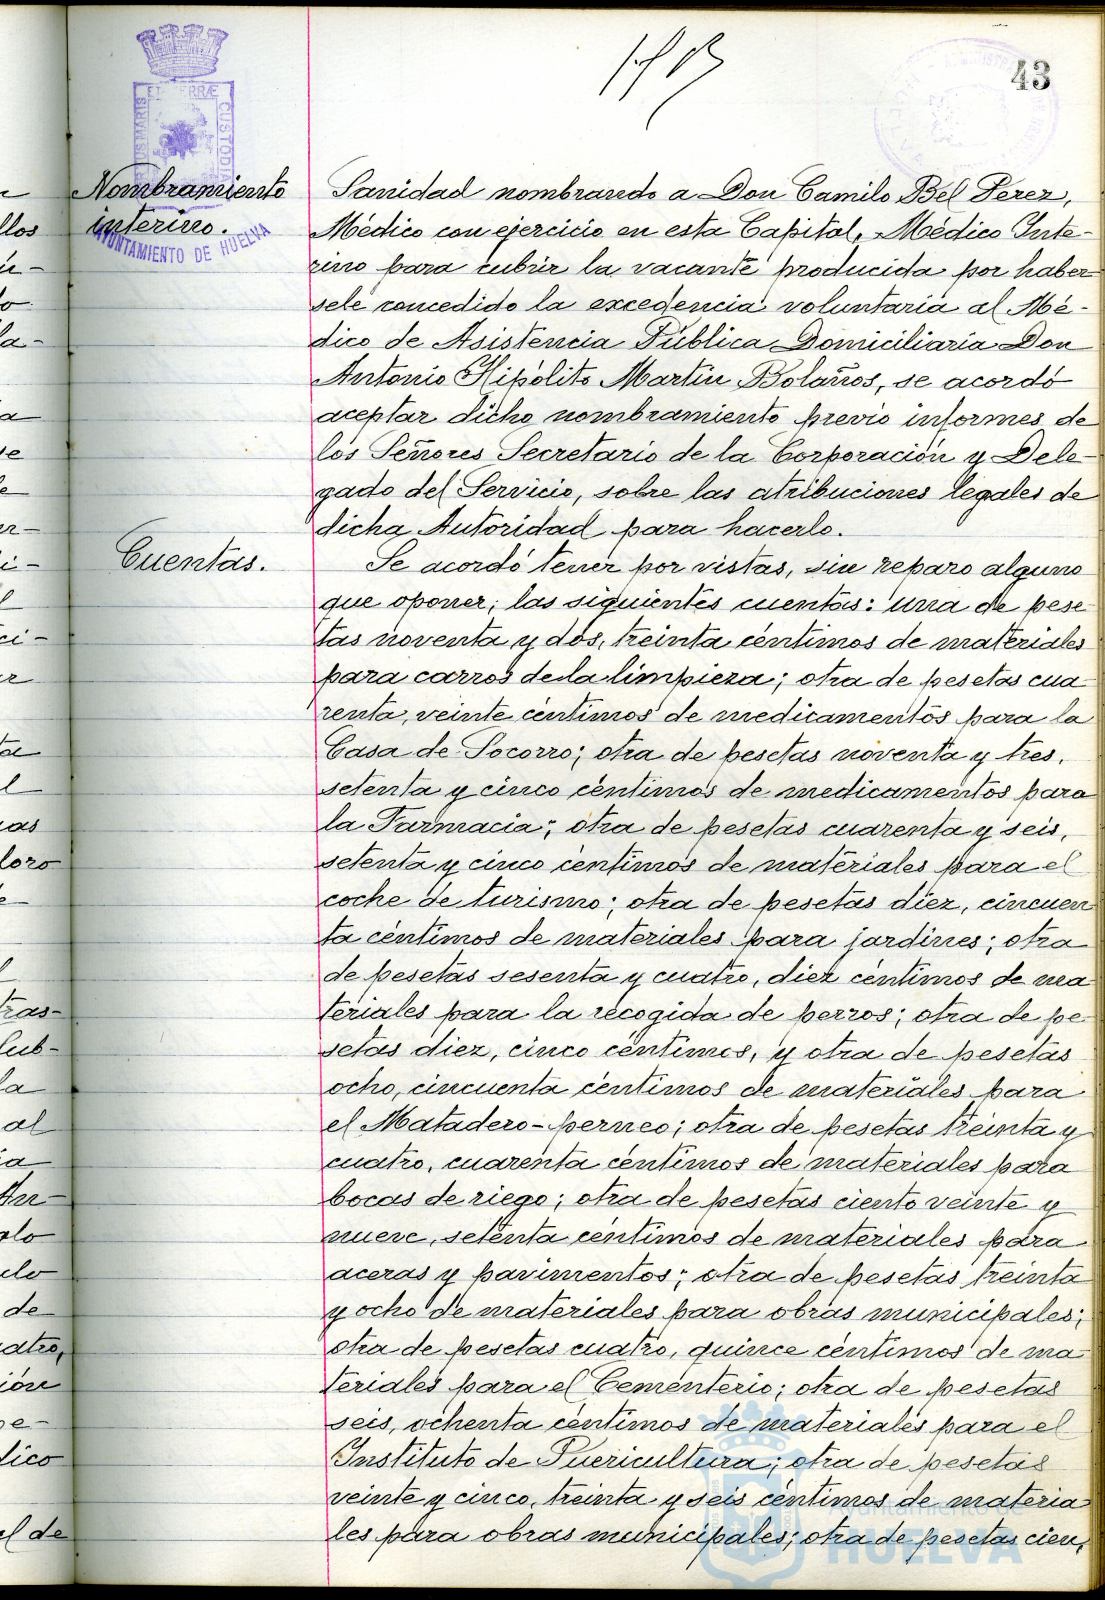 43
ET TERRÆ CUSTOD
US MARIS
AYUNTAMIENTO DE HUELVA
Nombramiento
interino.
Sanidad nombrando a Don Camilo Bel Perez,
Médico con ejercicio en esta Capital, Médico Inte-
rino para cubrir la vacante producida por haber
sele concedido la excedencia voluntaria al Mé-
dico de Asistencia Pública Domiciliaria Don
Antonio Hipólito Martín Bolaños, se acordó
aceptar dicho nombramiento previo informes de
los Señores Secretario de la Corporación y Dele-
gado del Servicio, sobre las atribuciones legales de
dicha Autoridad para hacerlo.
Cuentas.
Se acordó tener por vistas, sin reparo alguno
que oponer, las siguientes cuentas: una de pese
tas noventa y dos, treinta céntimos de materiales
para carros de la limpieza; otra de pesetas cua
renta, veinte céntimos de medicamentos para la
Casa de Socorro; otra de pesetas noventa y tres,
setenta y cinco céntimos de medicamentos para
la Farmacia; otra de pesetas cuarenta y seis,
setenta y cinco céntimos de materiales para el
coche de turismo; otra de pesetas diez, cincuen
ta céntimos de materiales para jardines; otra
de pesetas sesenta y cuatro, diez céntimos de ma
teriales para la recogida de perros; otra de pe
setas diez, cinco céntimos, y otra de pesetas
ocho, cincuenta céntimos de materiales para
el Matadero-perneo; otra de pesetas treinta y
cuatro, cuarenta céntimos de materiales para
bocas de riego; otra de pesetas ciento veinte y
nueve, setenta céntimos de materiales para
aceras y pavimentos; otra de pesetas treinta
y ocho de materiales para obras municipales;
otra de pesetas cuatro, quince céntimos de ma
teriales para el Cementerio; otra de pesetas
seis, ochenta céntimos de materiales para el
Instituto de Puericultura; otra de pesetas
veinte y cinco, treinta y seis céntimos de materia
les para obras municipales; otra de pesetas cien,
Ayuntamiento de
HUELVA